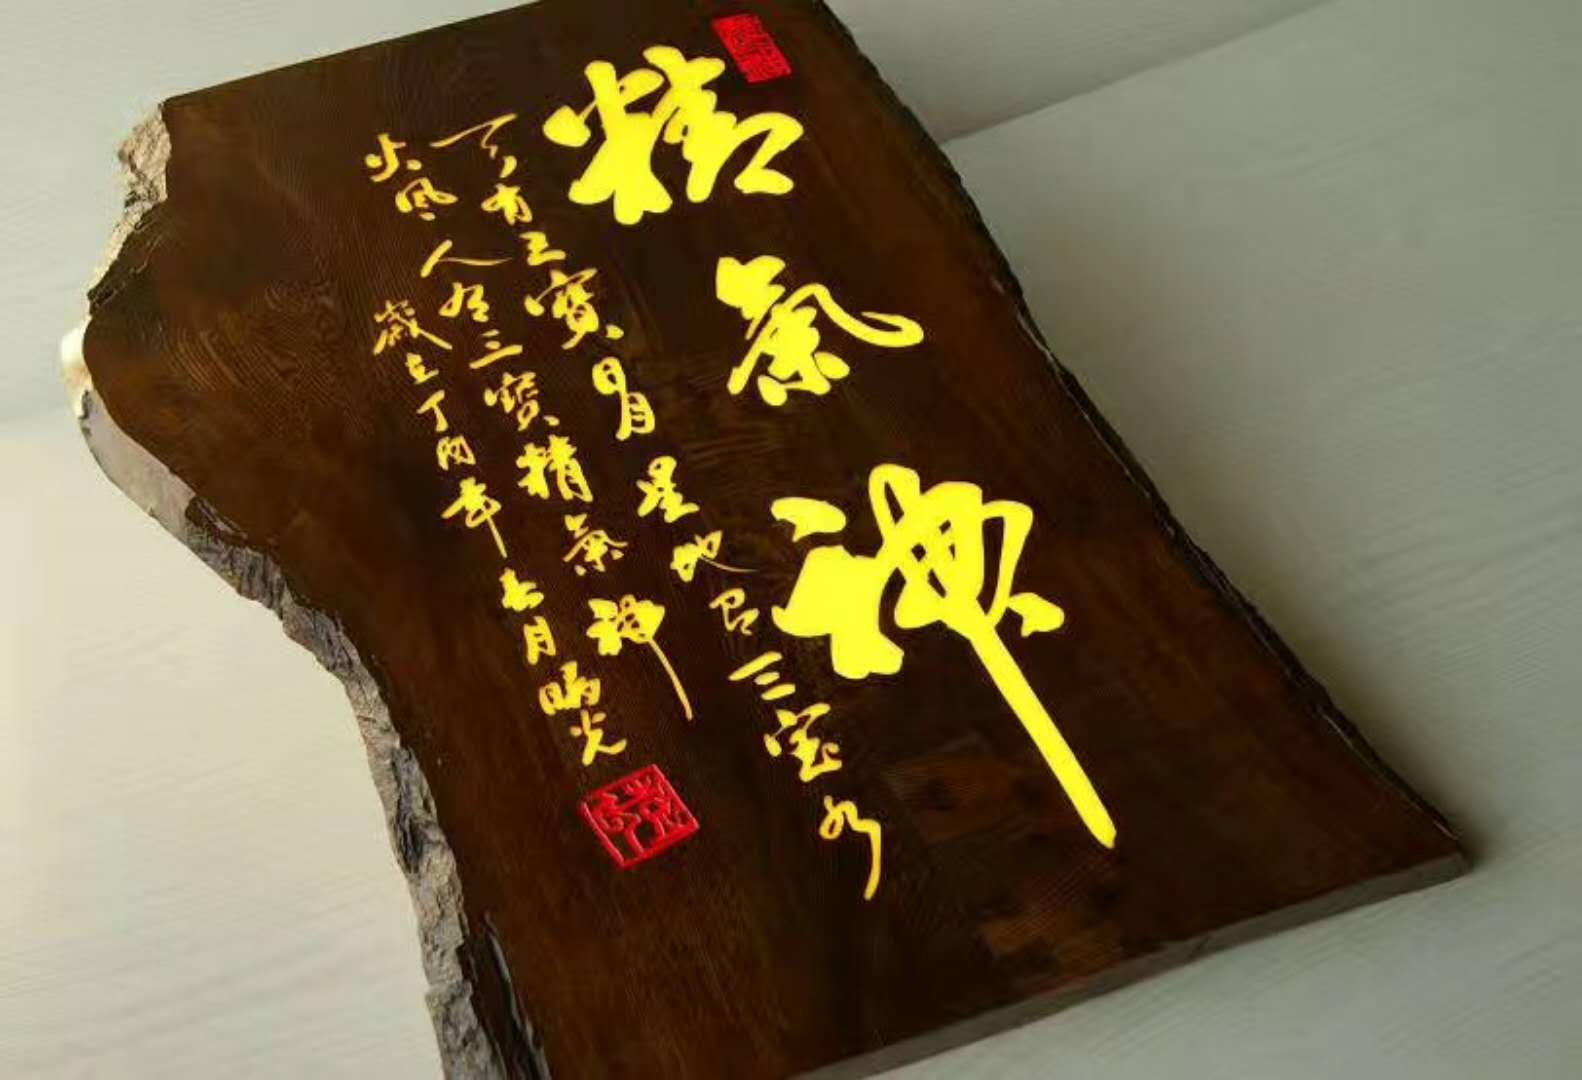 精氣神
天有三寶日月星地有三宝水
火風人有三寶精氣神
歲在丁酉年月光